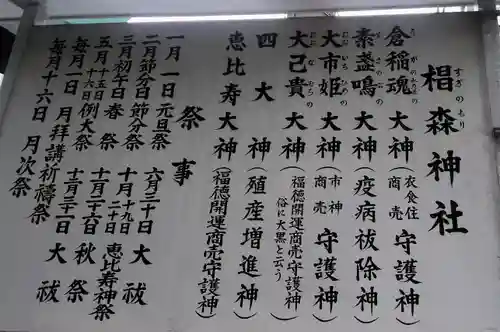 椙森神社
すぎのもり
倉稲魂大神（衣食住 商売 守護神）
素盞嗚大神（疫病祓除神）
大市姫大神（市神 商売 守護神）
大己貴大神（福徳開運商売守護神 俗に大黒と云う）
四大神（殖産増進神）
恵比寿大神（福徳開運商売守護神）
祭事
一月一日 元旦祭
二月節分日 節分祭
三月初午日 春祭
五月十五日 十六日 例大祭
毎月一日 月拝講祈禱祭
毎月十六日 月次祭
六月三十日 大祓
十月十九日 二十日 恵比寿神祭
十一月二十六日 秋祭
十二月三十一日 大祓